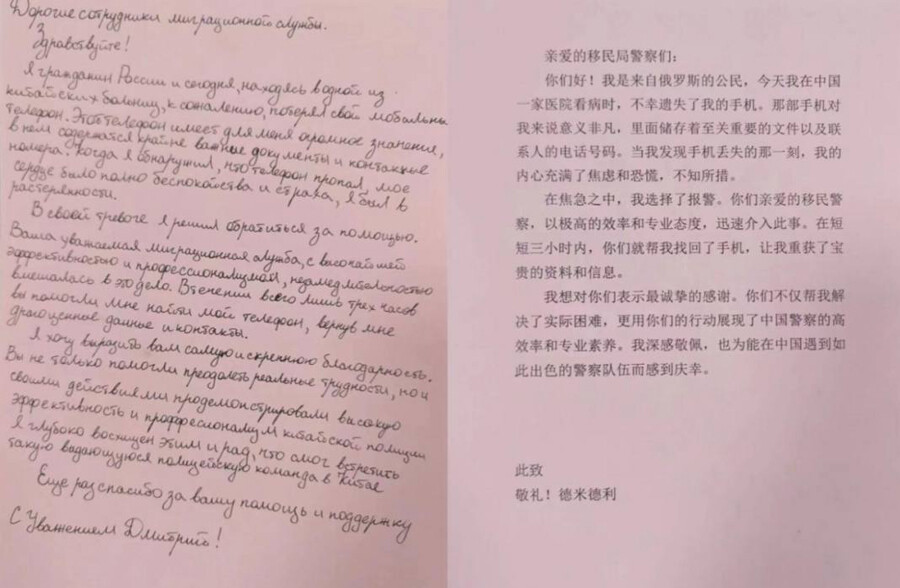 Дорогие сотрудники миграционной службы.
Здравствуйте!
Я гражданин России и сегодня, находясь в одной из
китайских больниц, к сожалению, потерял свой мобильный
телефон. Этот телефон имеет для меня огромное значение,
в нем содержатся крайне важные документы и контактные
номера. Когда я обнаружил, что телефон пропал, мое
сердце было полно беспокойства и страха, я был в
растерянности.
В своей тревоге я решил обратиться за помощью.
Ваша уважаемая миграционная служба, с высочайшей
эффективностью и профессионализмом, незамедлительностью
вмешалась в это дело. В течении всего лишь трех часов
вы помогли мне найти мой телефон, вернув мне
драгоценные данные и контакты.
Я хочу выразить вам самую искреннюю благодарность.
Вы не только помогли преодолеть реальные трудности, но и
своими действиями продемонстрировали высокую
эффективность и проффесионализм китайской полиции
Я глубоко восхищен этим и рад, что смог встретить
такую выдающуюся полицейскую команда в Китае
Еще раз спасибо за вашу помощь и поддержку
С Уважением Дмитрий!
亲爱的移民局警察们：
你们好！我是来自俄罗斯的公民，今天我在中国
一家医院看病时，不幸遗失了我的手机。那部手机对
我来说意义非凡，里面储存着至关重要的文件以及联
系人的电话号码。当我发现手机丢失的那一刻，我的
内心充满了焦虑和恐慌，不知所措。
在焦急之中，我选择了报警。你们亲爱的移民警
察，以极高的效率和专业态度，迅速介入此事。在短
短三小时内，你们就帮我找回了手机，让我重获了宝
贵的资料和信息。
我想对你们表示最诚挚的感谢。你们不仅帮我解
决了实际困难，更用你们的行动展现了中国警察的高
效率和专业素养。我深感敬佩，也为能在中国遇到如
此出色的警察队伍而感到庆幸。
此致
敬礼！德米德利